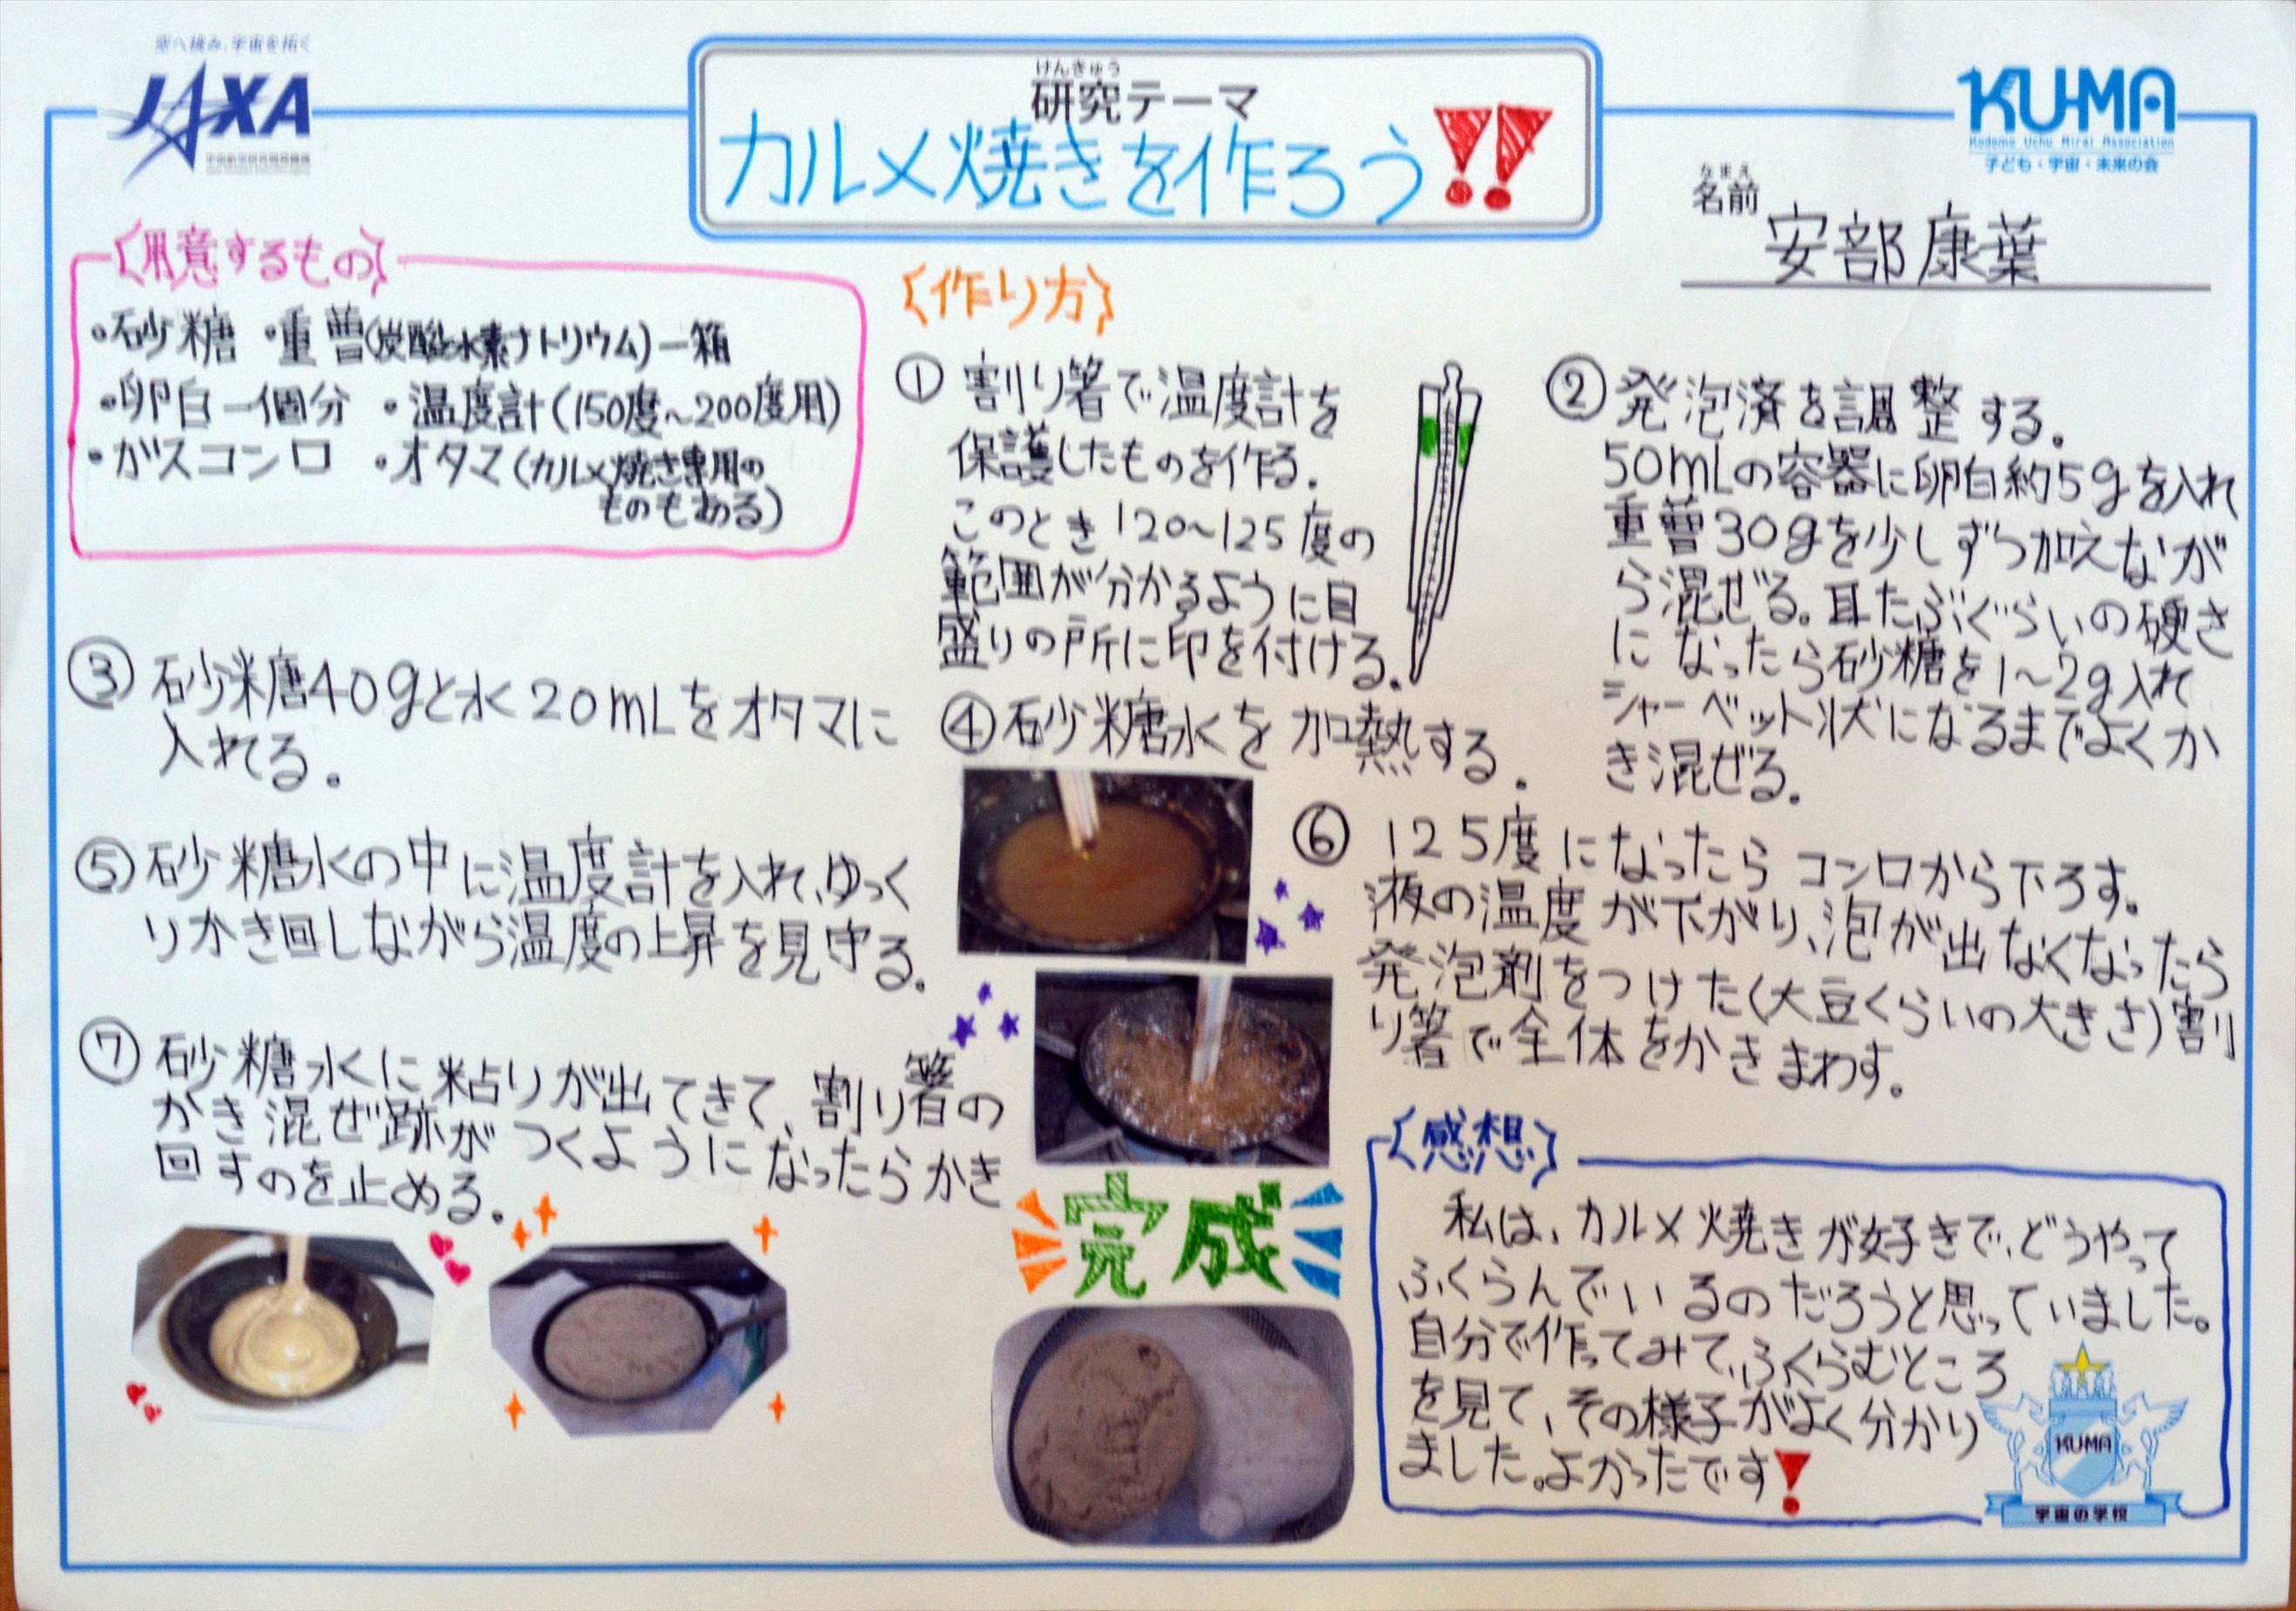 空へ挑み、宇宙を拓く
JAXA
宇宙航空研究開発機構
けんきゅう
研究テーマ
カルメ焼きを作ろう!!
KUMA
Kodomo Uchu Mirai Association
子ども・宇宙・未来の会
なまえ
名前
安部康葉
{用意するもの}
・砂糖 ・重曹(炭酸水素ナトリウム)一箱
・卵白一個分 ・温度計(150度~200度用)
・ガスコンロ ・オタマ(カルメ焼き専用の
ものもある)
{作り方}
① 割り箸で温度計を
保護したものを作る.
このとき120~125度の
範囲が分かるように目
盛りの所に印を付ける.
② 発泡済を調整する.
50mLの容器に卵白約5gを入れ
重曹30gを少しずつ加えなが
ら混ぜる。耳たぶぐらいの硬さ
になったら砂糖を1~2g入れ
シャーベット状になるまでよくか
き混ぜる.
③ 砂糖40gと水20mLをオタマに
入れる.
④砂糖水を加熱する.
⑤砂糖水の中に温度計を入れ、ゆっく
りかき回しながら温度の上昇を見守る.
⑥ 125度になったらコンロから下ろす。
液の温度が下がり、泡が出なくなったら
発泡剤をつけた(大豆くらいの大きさ)割
り箸で全体をかきまわす。
⑦ 砂糖水に粘りが出てきて、割り箸の
かき混ぜ跡がつくようになったらかき
回すのを止める.
完成
{感想}
私は、カルメ焼きが好きで、どうやって
ふくらんでいるのだろうと思っていました。
自分で作ってみて、ふくらむところ
を見て、その様子がよく分かり
ました。よかったです!
KUMA
宇宙の学校